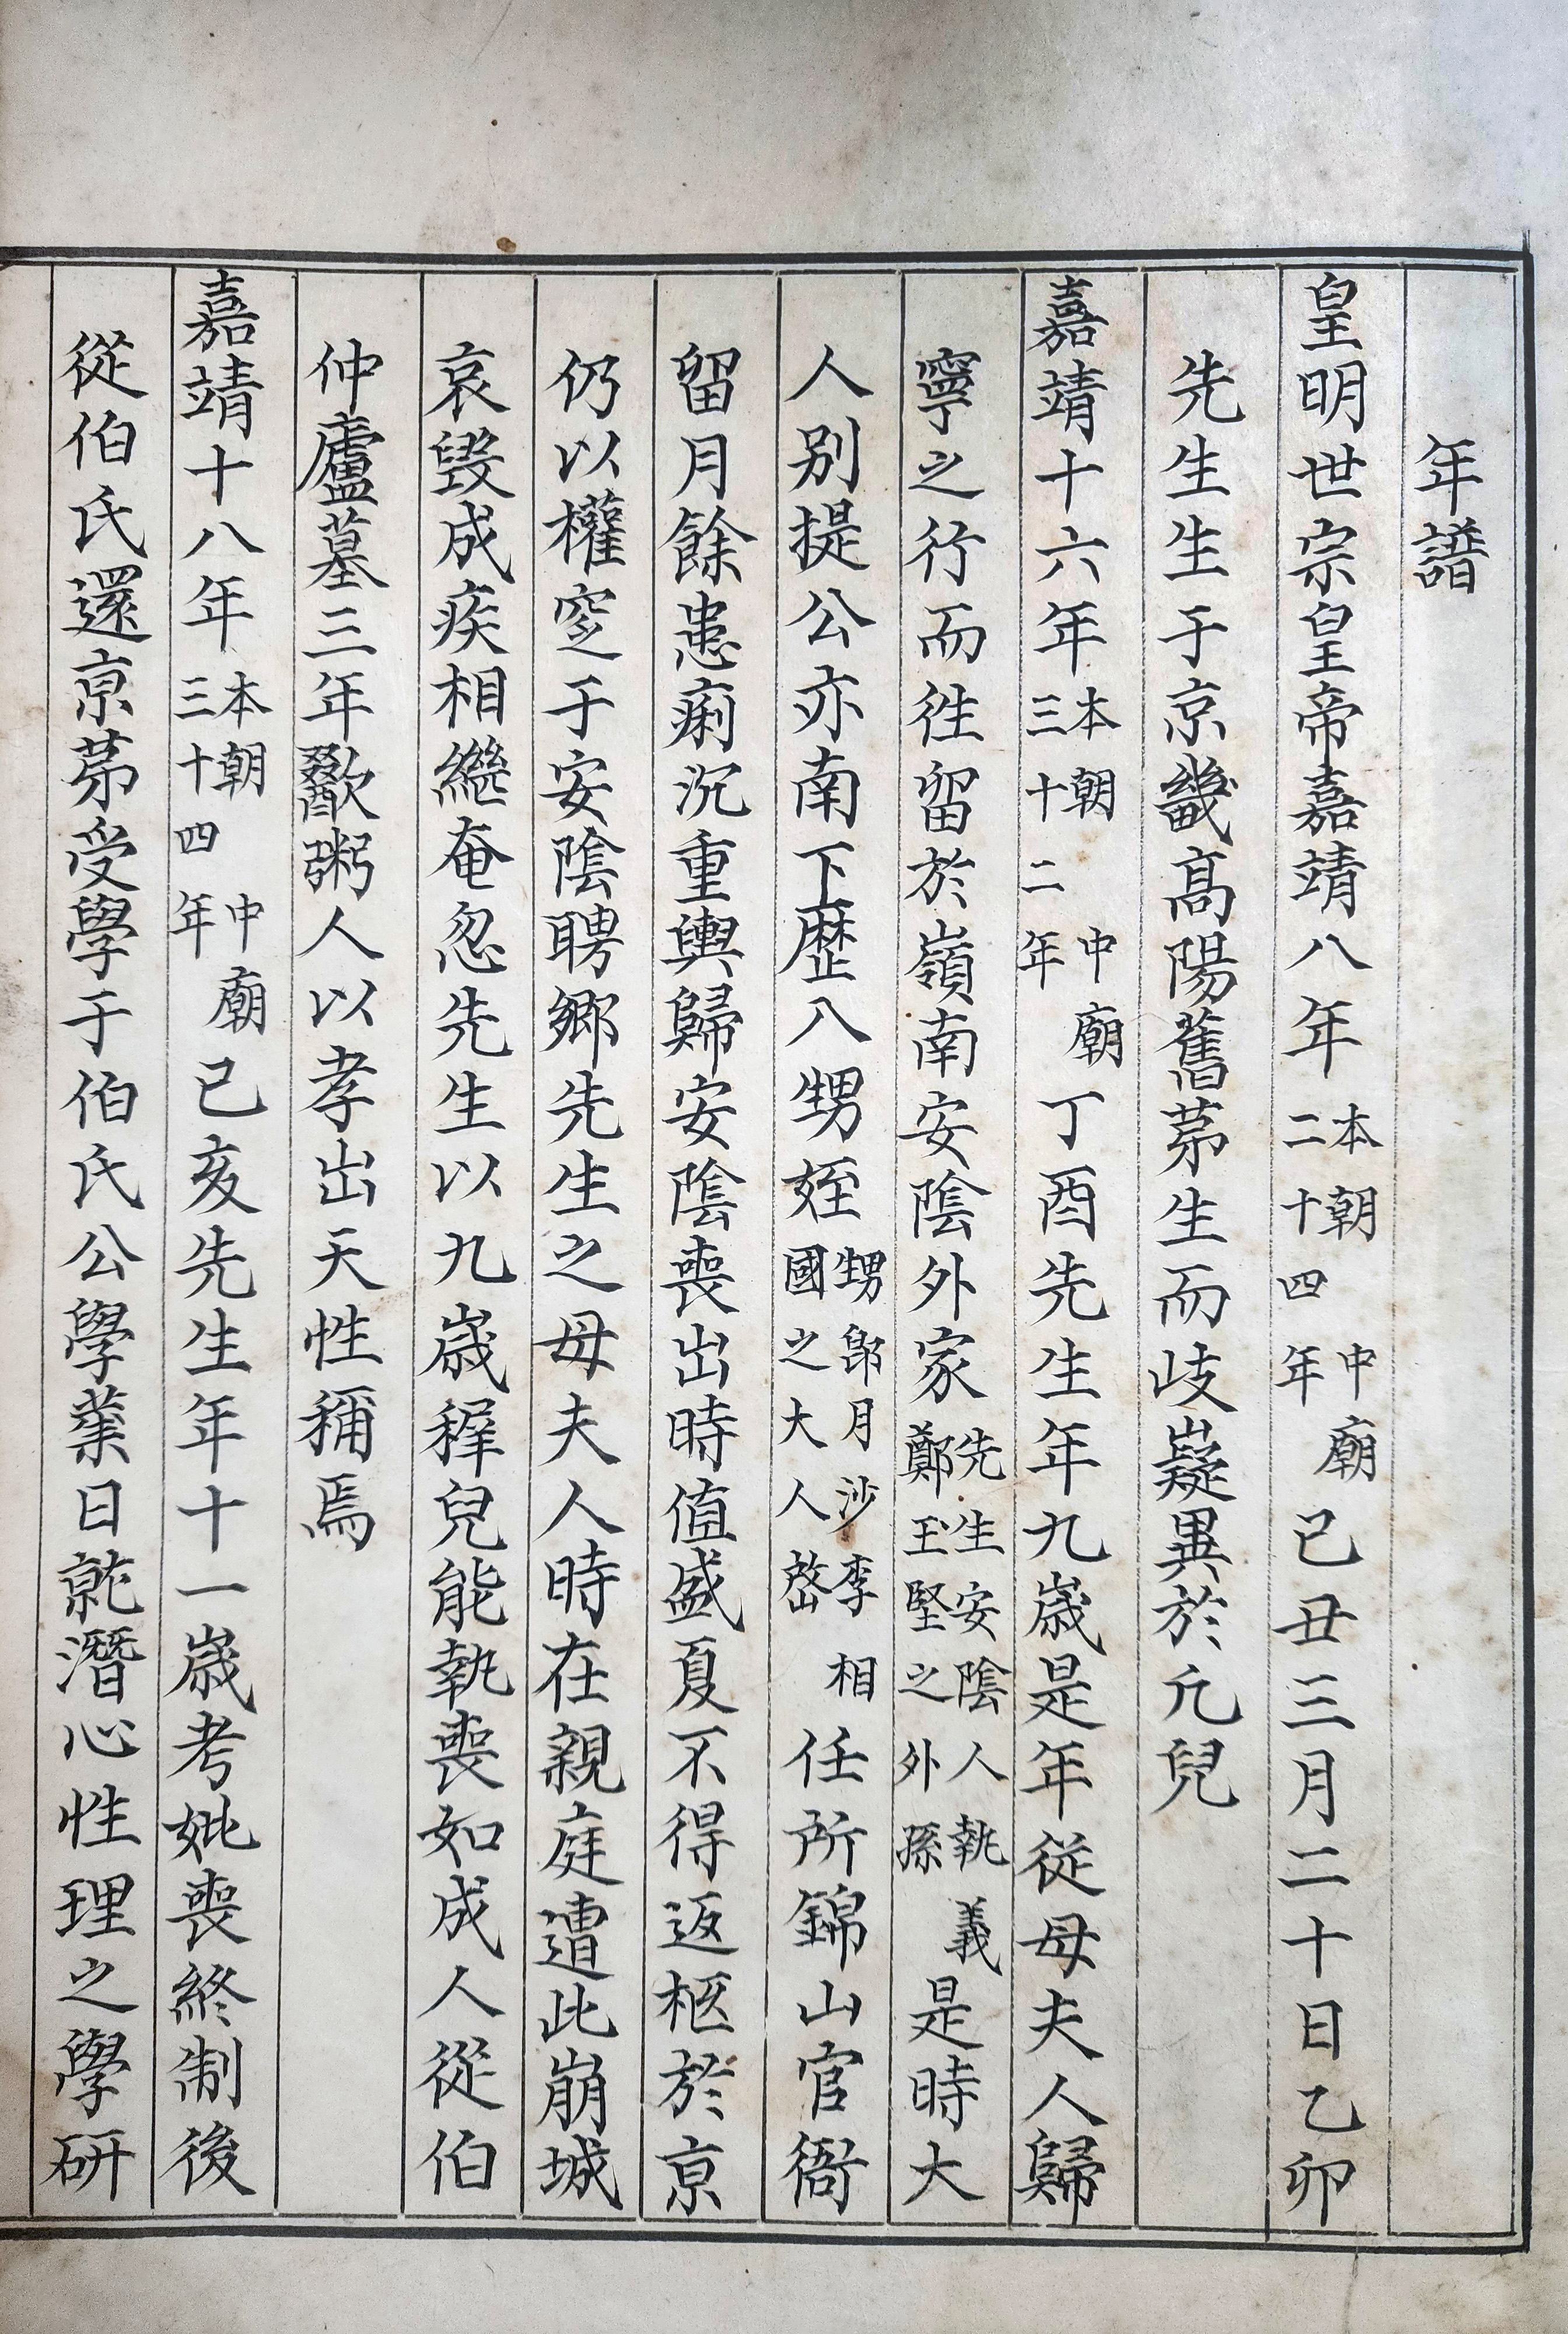 年譜
皇明世宗皇帝嘉靖八年本朝二十四年中廟己丑三月二十日乙卯
先生生于京畿高陽舊苐生而岐嶷異於凡兒
嘉靖十六年本朝三十二年中廟丁酉先生年九歲是年從母夫人歸
寧之行而徃留於嶺南安陰外家先生安陰人執義鄭玉堅之外孫是時大
人別提公亦南下歷八甥姪甥郎月沙李相國之大人啓任所錦山官衙
留月餘患痢沉重輿歸安陰喪出時值盛夏不得返柩於京
仍以權窆于安陰聘鄉先生之母夫人時在親庭遭此崩城
哀毀成疾相繼奄忽先生以九歲穉兒能執喪如成人從伯
仲廬墓三年歠粥人以孝出天性稱焉
嘉靖十八年本朝三十四年中廟己亥先生年十一歲考妣喪終制後
從伯氏還京苐受學于伯氏公學業日就潛心性理之學研